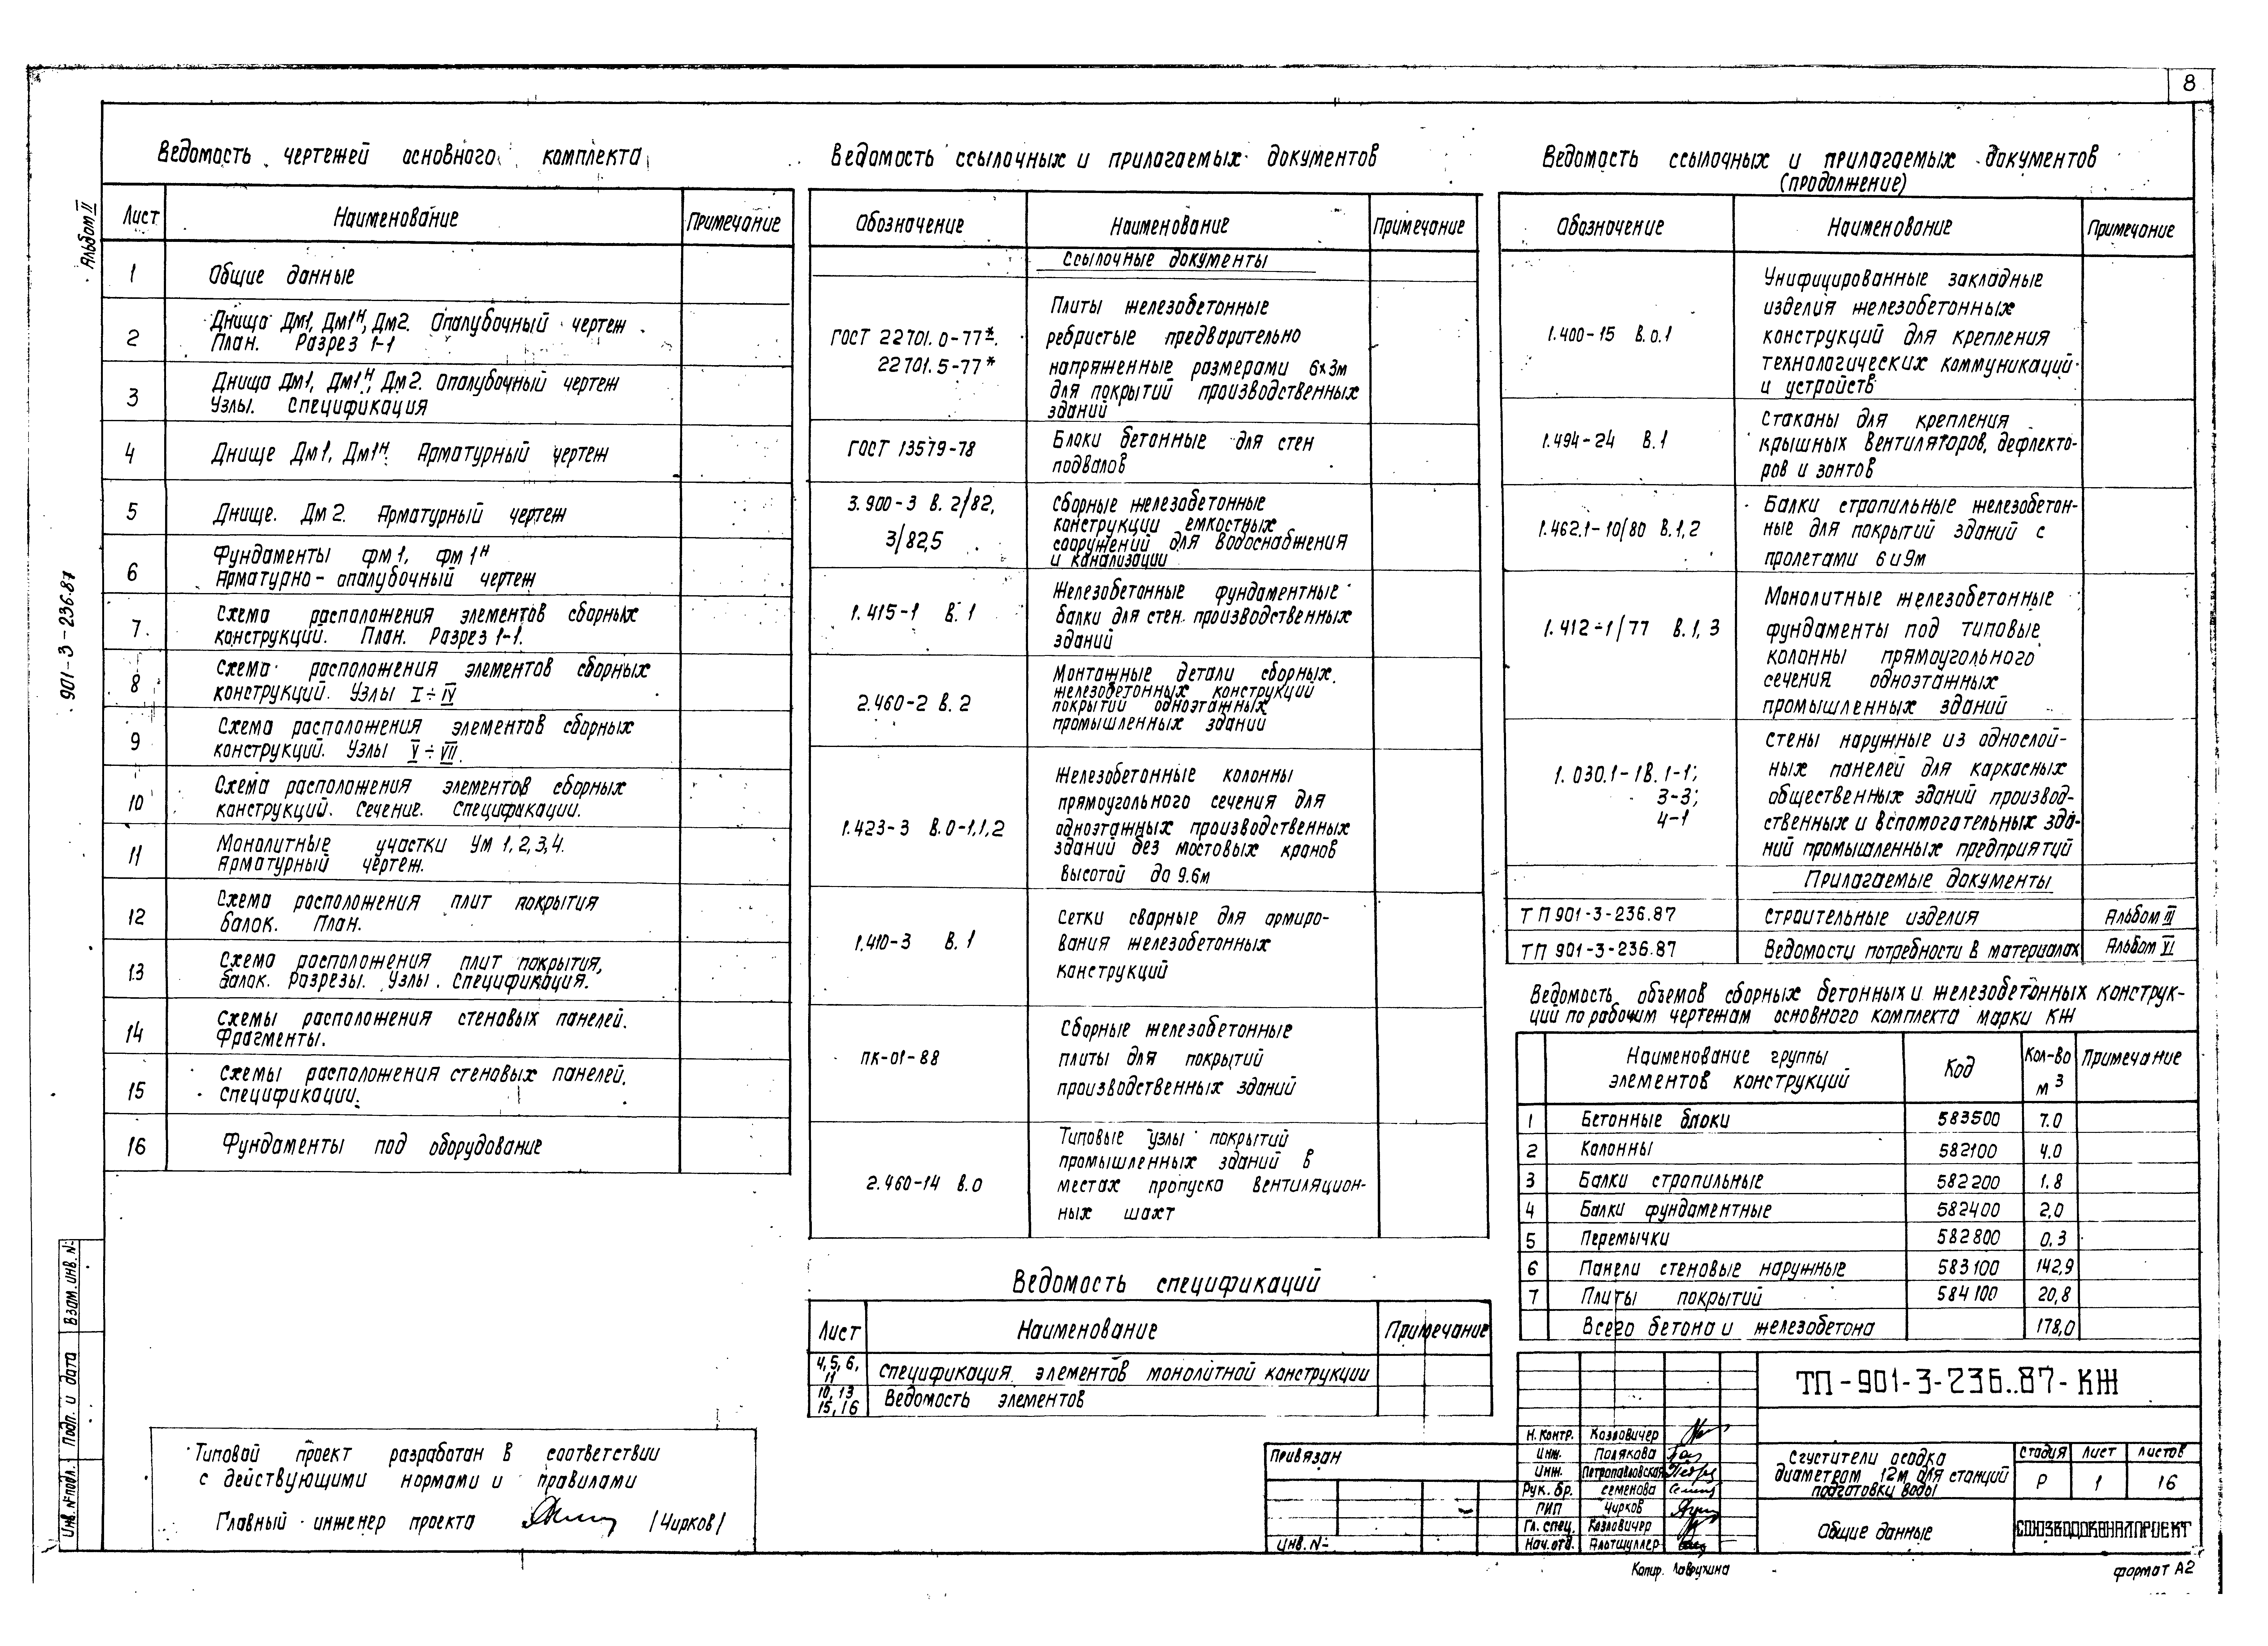 8
Альбом II
901-3-236.87
Ведомость чертежей основного комплекта
Лист Наименование Примечание
1 Общие данные
2 Днища Дм1, Дм1н, Дм2. Опалубочный чертеж
План. Разрез 1-1
3 Днища Дм1, Дм1н, Дм2. Опалубочный чертеж
Узлы. Спецификация
4 Днище Дм1, Дм1н. Арматурный чертеж
5 Днище. Дм2. Арматурный чертеж
6 Фундаменты фм1, фм1н
Арматурно-опалубочный чертеж
7 Схема расположения элементов сборных
конструкций. План. Разрез 1-1.
8 Схема расположения элементов сборных
конструкций. Узлы I÷IV
9 Схема расположения элементов сборных
конструкций. Узлы V÷VII.
10 Схема расположения элементов сборных
конструкций. Сечение. Спецификации.
11 Монолитные участки Ум 1,2,3,4.
Арматурный чертеж.
12 Схема расположения плит покрытия
балок. План.
13 Схема расположения плит покрытия,
балок. Разрезы. Узлы. Спецификация.
14 Схемы расположения стеновых панелей.
Фрагменты.
15 Схемы расположения стеновых панелей.
Спецификации.
16 Фундаменты под оборудование
Типовой проект разработан в соответствии
с действующими нормами и правилами
Главный инженер проекта /Чирков/
Инв. № подл. Подп. и дата Взам. инв. №
Ведомость ссылочных и прилагаемых документов
Обозначение Наименование Примечание
Ссылочные документы
ГОСТ 22701.0-77*.
22701.5-77*
Плиты железобетонные
ребристые предварительно
напряженные размерами 6х3м
для покрытий производственных
зданий
ГОСТ 13579-78 Блоки бетонные для стен
подвалов
3.900-3 в. 2/82,
3/82,5
Сборные железобетонные
конструкции емкостных
сооружений для водоснабжения
и канализации
1.415-1 в. 1 Железобетонные фундаментные
балки для стен производственных
зданий
2.460-2 в. 2 Монтажные детали сборных
железобетонных конструкций
покрытий одноэтажных
промышленных зданий
1.423-3 в.0-1,1,2 Железобетонные колонны
прямоугольного сечения для
одноэтажных производственных
зданий без мостовых кранов
высотой до 9.6м
1.410-3 в. 1 Сетки сварные для армиро-
вания железобетонных
конструкций
ПК-01-88 Сборные железобетонные
плиты для покрытий
производственных зданий
2.460-14 в.0 Типовые узлы покрытий
промышленных зданий в
местах пропуска вентиляцион-
ных шахт
Ведомость спецификаций
Лист Наименование Примечание
4,5,6,
11
Спецификация элементов монолитной конструкции
10,13
15,16
Ведомость элементов
Ведомость ссылочных и прилагаемых документов
(продолжение)
Обозначение Наименование Примечание
1.400-15 в.0.1 Унифицированные закладные
изделия железобетонных
конструкций для крепления
технологических коммуникаций
и устройств
1.494-24 в.1 Стаканы для крепления
крышных вентиляторов, дефлекто-
ров и зонтов
1.462.1-10/80 в.1,2 Балки стропильные железобетон-
ные для покрытий зданий с
пролетами 6 и 9м
1.412-1/77 в.1,3 Монолитные железобетонные
фундаменты под типовые
колонны прямоугольного
сечения одноэтажных
промышленных зданий
1.030.1-1в.1-1;
3-3;
4-1
Стены наружные из однослой-
ных панелей для каркасных
общественных зданий производ-
ственных и вспомогательных зда-
ний промышленных предприятий
Прилагаемые документы
ТП 901-3-236.87 Строительные изделия Альбом III
ТП 901-3-236.87 Ведомости потребности в материалах Альбом VI
Ведомость объемов сборных бетонных и железобетонных конструк-
ций по рабочим чертежам основного комплекта марки КЖ
Наименование группы
элементов конструкций
Код Кол-во
м3
Примечание
1 Бетонные блоки 583500 7.0
2 Колонны 582100 4.0
3 Балки стропильные 582200 1.8
4 Балки фундаментные 582400 2,0
5 Перемычки 582800 0.3
6 Панели стеновые наружные 583100 142,9
7 Плиты покрытий 584100 20,8
Всего бетона и железобетона 178,0
Привязан
Инв. №
Н.контр. Козловичер
Инж. Полякова
Инж. Петропавловская
Рук. бр. Семенова
ГИП Чирков
Гл. спец. Козловичер
Нач.отд. Альтшуллер
ТП-901-3-236..87-КЖ
Сгустители осадка
диаметром 12м для станций
подготовки воды
Стадия Лист Листов
Р 1 16
Общие данные
СОЮЗВОДОКАНАЛПРОЕКТ
Копир. Лаврухина
формат А2